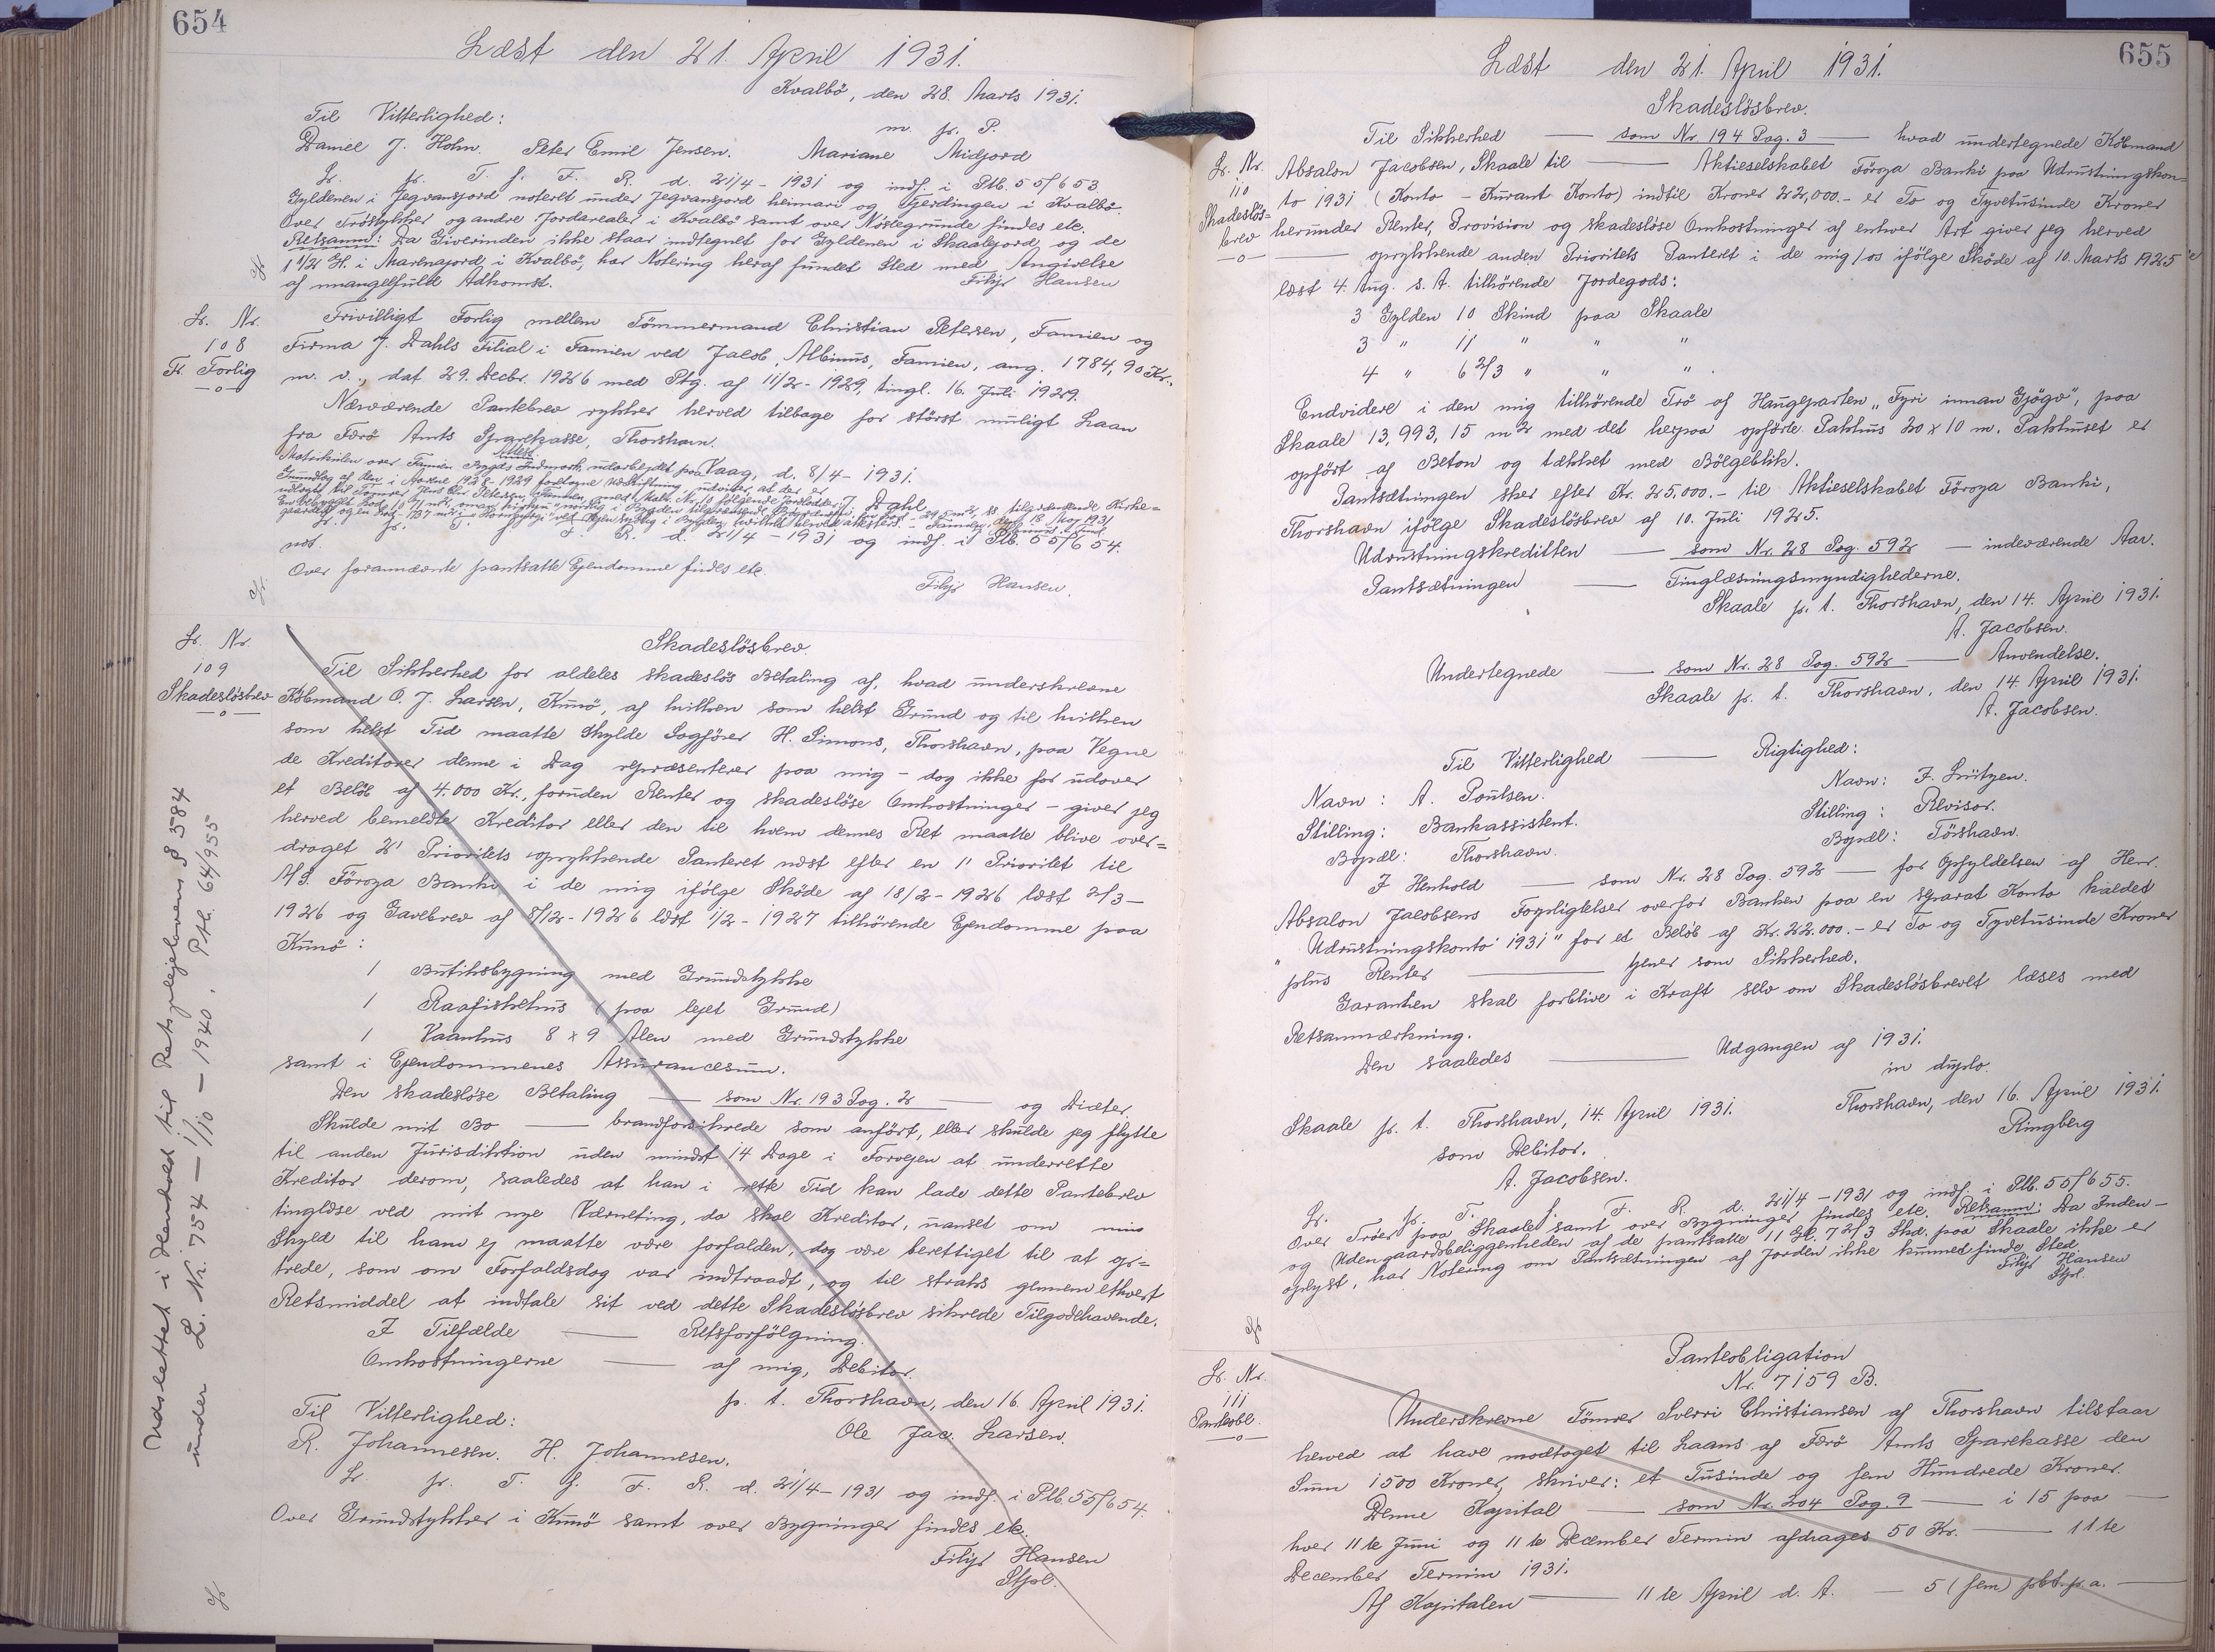 654
Læst den 21. April 1931.
Kvalbö, den 28. Marts 1931.
Til Vitterlighed:
m. p. P.
Daniel J. Holm. Peter Emil Jensen. Mariane Midjord
Lr. pr. T. f. F. R. d. 21/4 - 1931 og indf. i Ptb. 55/653.
Gyldenen i Jegvansjord noteret under Jegvansjord heimari og Gjerdingen i Kvalbö.
Over Tröstykker og andre Jordarealer i Kvalbö samt over Nöstegrunde findes etc.
Retsanm: Da Giverinden ikke staar indtegnet for Gyldenen i Skaalejord og de
1 1/2 G. i Marknajord, i Kvalbö, har Notering heraf fundet Sted med Angivelse
af mangelfuld Adkomst. Filip Hansen
Lr. Nr.
108
Fr. Forlig
—o—
Frivilligt Forlig mellem Tömmermand Christian Petersen, Famien og
Firma J. Dahls Filial i Famien ved Jacob Albinus, Famien, ang. 1784,90 Kr.,
m. v., dat 29. Decbr. 1926 med Ptg. af 11/2 - 1929, tingl. 16. Juli 1929.
Nærværende Pantebrev rykker herved tilbage for störst muligt Laan
fra Færö Amts Sparekasse, Thorshavn.
Vaag, d. 8/4 - 1931.
J. Dahl.
Attest.
Matrikulen over Famien Bygds Indmark, udarbejdet paa
Grundlag af den i Aarene 1928-1929 foretagne Udskiftning, udviser, at der er
Lr. pr. T. f. F. R. d. 21/4 - 1931 og indf. i Ptb. 55/654.
Over forannævnte pantsatte Ejendomme findes etc.
Filip Hansen.
Lr. Nr.
109
Skadeslösbrev
—o—
Skadeslösbrev.
Til Sikkerhed for aldeles skadeslös Betaling af, hvad underskrevne
Köbmand O. J. Larsen, Kunö, af hvilken som helst Grund og til hvilken
som helst Tid maatte skylde Sagförer H. Simons, Thorshavn, paa Vegne
de Kreditorer denne i Dag repræsenterer paa mig - dog ikke for udover
et Belöb af 4.000 Kr., foruden Renter og skadeslöse Omkostninger - giver jeg
herved bemeldte Kreditor eller den til hvem dennes Ret maatte blive over=
draget 2' Prioritets oprykkende Panteret næst efter en 1' Prioritet til
A/S. Föroya Banki i de mig ifölge Sköde af 18/2 - 1926 læst 2/3 -
1926 og Gavebrev af 8/12 - 1926 læst 1/2 - 1927 tilhörende Ejendomme paa
Kunö:
1 Butiksbygning med Grundstykke
1 Raafiskehus (paa lejet Grund)
1 Vaanhus 8 x 9 Alen med Grundstykke
samt i Ejendommenes Assurancesum.
Den skadeslöse Betaling — som Nr. 193 Pag. 2 — og Diæter.
Skulde mit Bo — brandforsikrede som anfört, eller skulde jeg flytte
til anden Jurisdiktion uden mindst 14 Dage i Forvejen at underrette
Kreditor derom, saaledes at han i rette Tid kan lade dette Pantebrev
tinglæse ved mit nye Værneting, da skal Kreditor, uanset om min
Skyld til ham ej maatte være forfalden, dog være berettiget til at op=
træde, som om Forfaldsdag var indtraadt, og til straks gennem ethvert
Retsmiddel at indtale sit ved dette Skadeslösbrev sikrede Tilgodehavende.
I Tilfælde — Retsforfölgning.
Omkostningerne — af mig, Debitor.
p. t. Thorshavn, den 16. April 1931.
Til Vitterlighed: Ole Jac. Larsen.
R. Johannesen. H. Johannesen.
Lr. pr. T. f. F. R. d. 21/4 - 1931 og indf. i Ptb. 55/654.
Over Grundstykker i Kunö samt over Bygninger findes etc.
Filip Hansen
Stpl.
Udslettet i Henhold til Retsplejelovens § 584
under L. Nr. 754 — 1/10 — 1940, Ptb. 64/955
655
Læst den 21. April 1931.
Skadeslösbrev.
Lr. Nr.
110
Skadeslös=
brev
—o—
Til Sikkerhed — som Nr. 194 Pag. 3 — hvad undertegnede Köbmand
Absalon Jacobsen, Skaale til — Aktieselskabet Föroya Banki paa Udrustningskon=
to 1931 (Konto - Kurant Konto) indtil Kroner 22,000.- er To og Tyvetusinde Kroner
herunder Renter, Provision og skadeslöse Omkostninger af enhver Art giver jeg herved
— oprykkende anden Prioritets Panteret i de mig/os ifölge Sköde af 10. Marts 1925
læst 4. Aug. s. A. tilhörende Jordegods:
3 Gylden 10 Skind paa Skaale
3 " 11 " " "
4 " 6 2/3 " " ".
Endvidere i den mig tilhörende Trö af Haugeparten „Fyri innan Gjögv", paa
Skaale 13,993,15 m2 med det herpaa opförte Pakhus 20 x 10 m. Pakhuset er
opfört af Beton og tækket med Bölgeblik.
Pantsætningen sker efter Kr. 25,000.- til Aktieselskabet Föroya Banki,
Thorshavn ifölge Skadeslösbrev af 10. Juli 1925.
Udrustningskreditten — som Nr. 28 Pag. 592 — indeværende Aar.
Pantsætningen — Tinglæsningsmyndighederne.
Skaale p. t. Thorshavn, den 14. April 1931.
A. Jacobsen.
Undertegnede — som Nr. 28 Pag. 592 — Anvendelse.
Skaale p. t. Thorshavn, den 14. April 1931.
A. Jacobsen.
Til Vitterlighed — Rigtighed:
Navn: A. Poulsen. Navn: F. Lützen.
Stilling: Bankassistent. Stilling: Revisor.
Bopæl: Thorshavn. Bopæl: Törshavn.
I Henhold — som Nr. 28 Pag. 592 — for Opfyldelsen af Herr.
Absalon Jacobsens Forpligtelser overfor Banken paa en separat Konto kaldet
"Udrustningskonto 1931" for et Belöb af Kr. 22.000.- er To og Tyvetusinde Kroner
plus Renter — tjener som Sikkerhed.
Garantien skal forblive i Kraft selv om Skadeslösbrevet læses med
Retsanmærkning.
Den saaledes — Udgangen af 1931.
in duplo.
Skaale p. t. Thorshavn, 14. April 1931. Thorshavn, den 16. April 1931.
som Debitor. Ringberg
A. Jacobsen.
Lr. pr. T. f. F. R. d. 21/4 - 1931 og indf. i Ptb. 55/655.
Over Tröer paa Skaale samt over Bygninger findes etc. Retsanm: Da Inden-
og Udengaardsbeliggenheden af de pantsatte 11 Gl. 7 2/3 Skd. paa Skaale ikke er
oplyst, har Notering om Pantsætningen af Jorden ikke kunnet finde Sted.
Filip Hansen
Stpl.
Lr. Nr.
111
Panteobl.
—o—
Panteobligation
Nr. 7159 B.
Underskrevne Tömrer Sverri Christiansen af Thorshavn tilstaar
herved at have modtaget til Laans af Færö Amts Sparekasse den
Sum 1500 Kroner, skriver: et Tusinde og fem Hundrede Kroner.
Denne Kapital — som Nr. 204 Pag. 9 — i 15 paa —
hver 11te Juni og 11te December Termin afdrages 50 Kr. — 11te
December Termin 1931.
Af Kapitalen — 11te April d. A. — 5 (fem) pCt. p. a. —